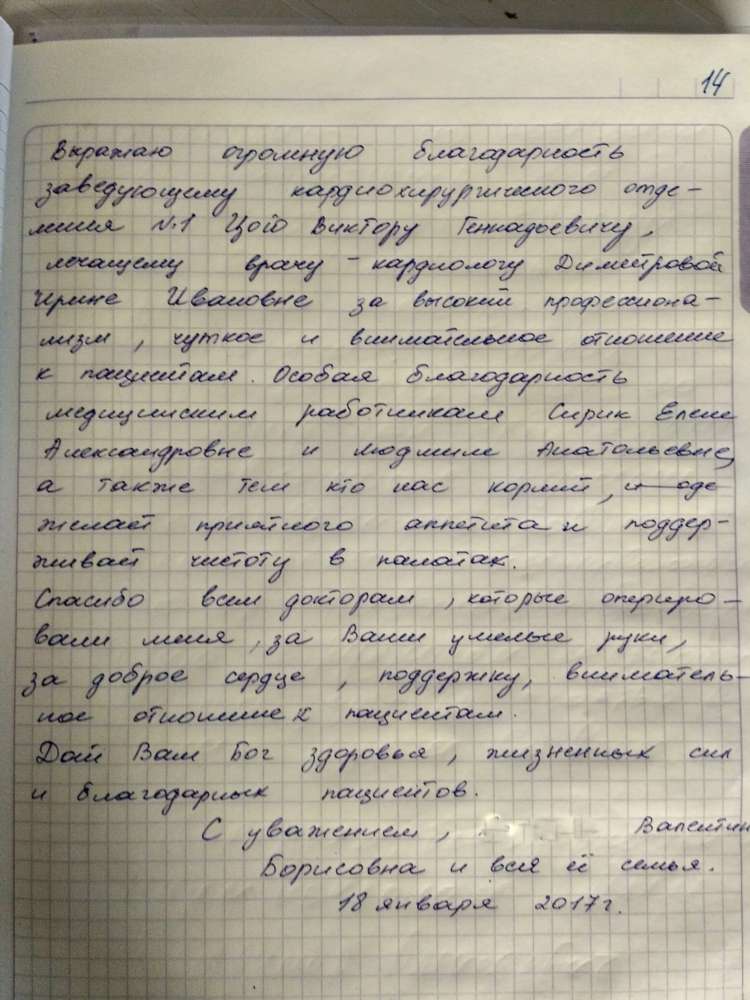 14
Выражаю огромную благодарность
заведующему кардиохирургического отде-
ления №1 Цого Виктору Геннадьевичу,
лечащему врачу - кардиологу Димитровой
Ирине Ивановне за высокий профессиона-
лизм, чуткое и внимательное отношение
к пациентам. Особая благодарность
медицинским работникам Сирик Елене
Александровне и Людмиле Анатольевне,
а также тем кто нас кормит,
желает приятного аппетита и поддер-
живает чистоту в палатах.
Спасибо всем докторам, которые опериро-
вали меня, за Ваши умелые руки,
за доброе сердце, поддержку, вниматель-
ное отношение к пациентам.
Дай Вам Бог здоровья, жизненных сил
и благодарных пациентов.
С уважением, Валентин
Борисовна и вся её семья.
18 января 2017г.